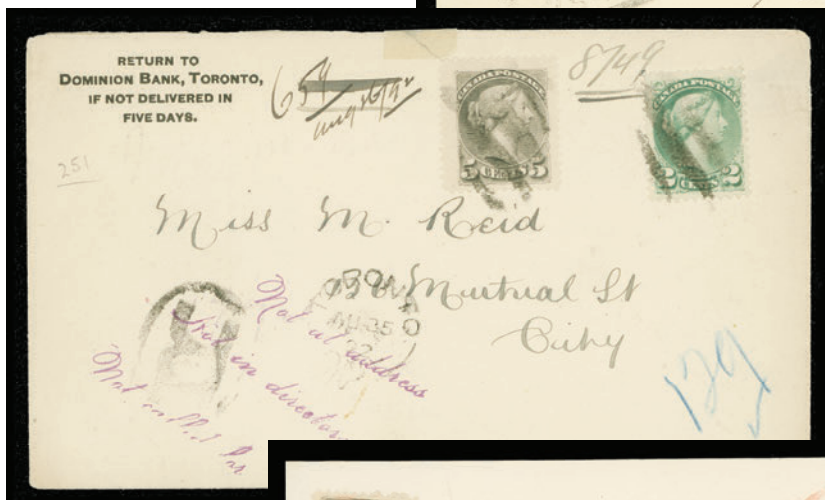 RETURN TO
DOMINION BANK, TORONTO,
IF NOT DELIVERED IN
FIVE DAYS.
659
8749
CANADA POSTAGE
5 CENTS 5
CANADA POSTAGE
2 CENTS 2
251
Miss M. Reid
Mutual St
City
TORONTO
AU 25
Not at address
Not in directory
Not called for
129